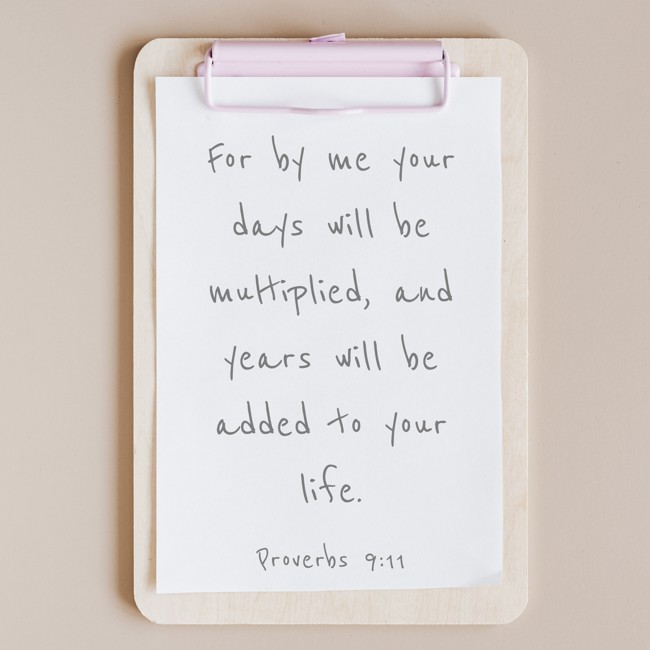 For by me your
days will be
multiplied, and
years will be
added to your
life.
Proverbs 9:11